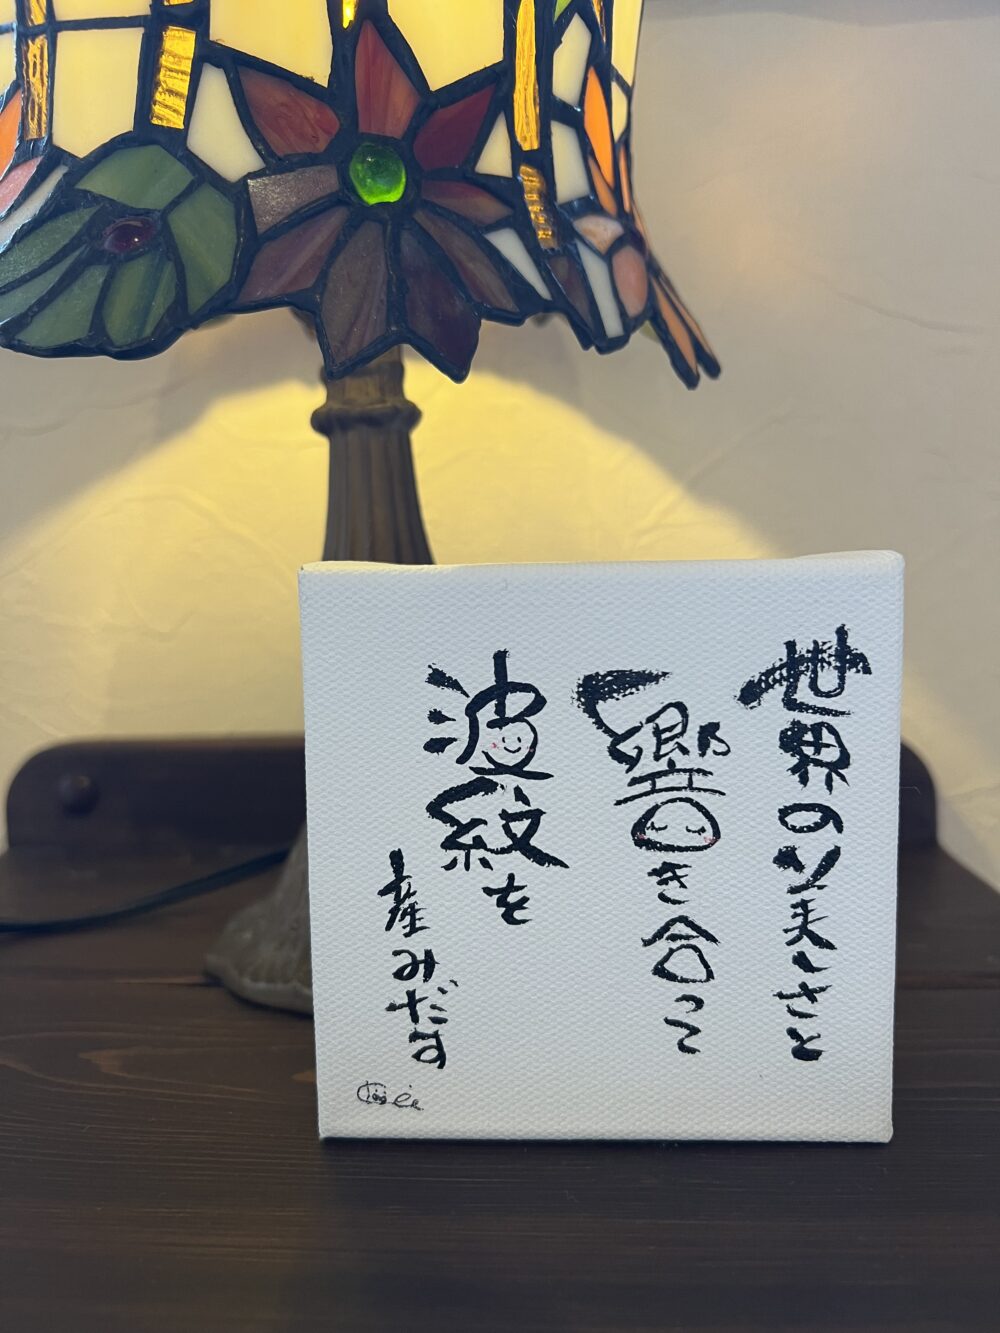 世界の美しさと
響き合って
波紋を
産みだす